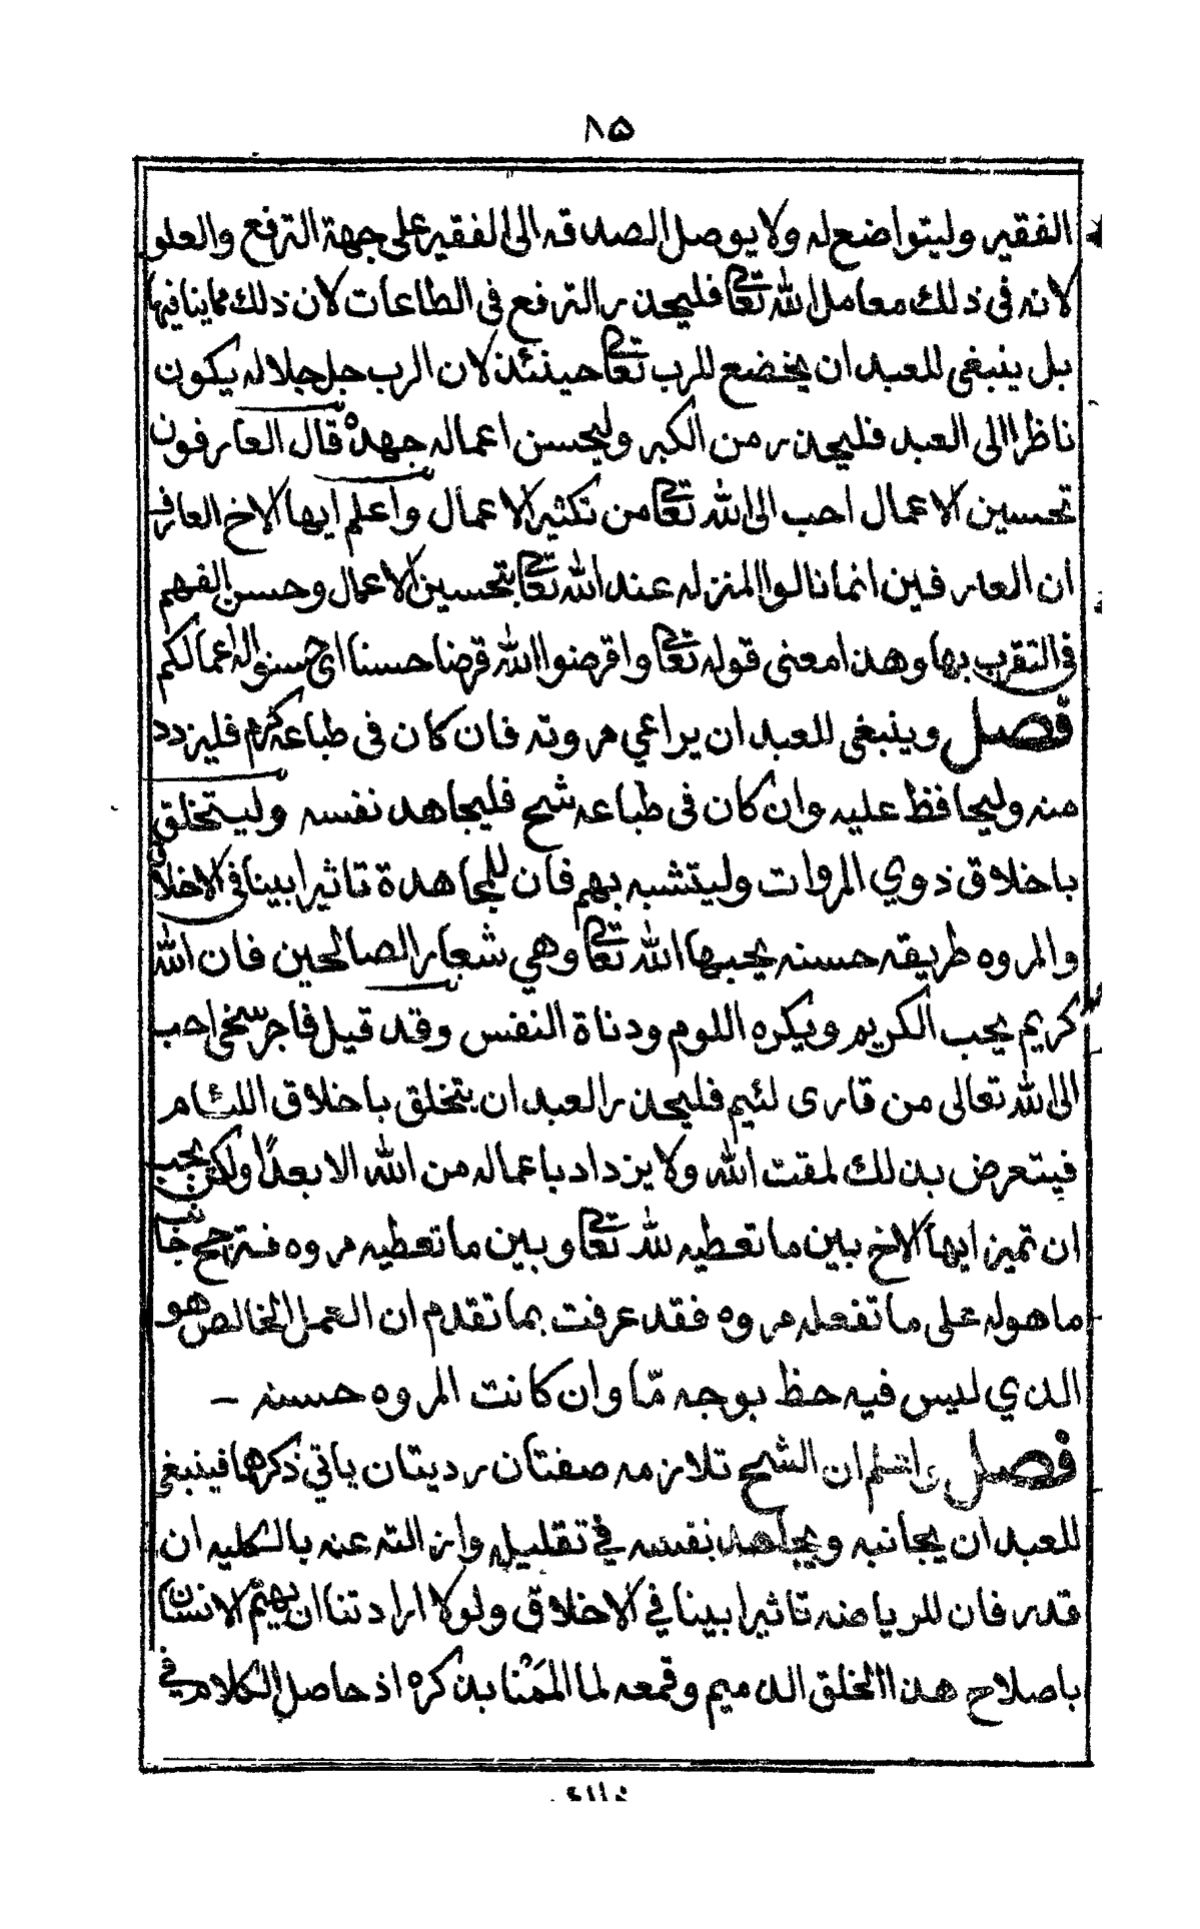 ٨٥
الفقير وليتواضع له ولا يوصل الصدقه الى الفقير على جهة الترفع والعلو
لانه في ذلك معامل الله تعالى فليحذر الترفع في الطاعات لان ذلك مما ينافيها
بل ينبغي للعبد ان يخضع للرب تعالى حينئذ لان الرب جل جلاله يكون
ناظرا الى العبد فليحذر من الكبر وليحسن اعماله جهده قال العارفون
تحسين الاعمال احب الى الله تعالى من تكثير الاعمال واعلم ايها الاخ العارف
ان العارفين انما نالوا المنزله عند الله تعالى بتحسين الاعمال وحسن الفهم
في التقرب بها وهذا معنى قوله تعالى واقرضوا الله قرضا حسنا اي حسنوا له اعمالكم
فصل وينبغي للعبد ان يراعي مروته فان كان في طباعه كرم فليزدد
منه وليحافظ عليه وان كان في طباعه شح فليجاهد نفسه وليتخلق
باخلاق ذوي المروات وليتشبه بهم فان للمجاهدة تاثيرا بينا في الاخلاق
والمروه طريقه حسنه يحبها الله تعالى وهي شعار الصالحين فان الله
كريم يحب الكريم ويكره اللوم ودناة النفس وقد قيل فاجر سخي احب
الى الله تعالى من قارى لئيم فليحذر العبد ان يتخلق باخلاق اللئام
فيتعرض بذلك لمقت الله ولا يزداد باعماله من الله الا بعدًا ولكن يجب
ان تميز ايها الاخ بين ما تعطيه لله تعالى وبين ما تعطيه مروه فترجح جانب
ما هو له على ما تفعله مروه فقد عرفت بما تقدم ان العمل الخالص هو
الذي ليس فيه حظ بوجه مّا وان كانت المروه حسنه –
فصل واعلم ان الشح تلازمه صفتان رديتان ياتي ذكرها فينبغي
للعبد ان يجانبه ويجاهد نفسه في تقليله وازالته عنه بالكليه ان
قدر فان للرياضه تاثيرا بينا في الاخلاق ولولا ارادتنا ان يهتم الانسان
باصلاح هذا الخلق الذميم وقمعه لما الممنا بذكره اذ حاصل الكلام في